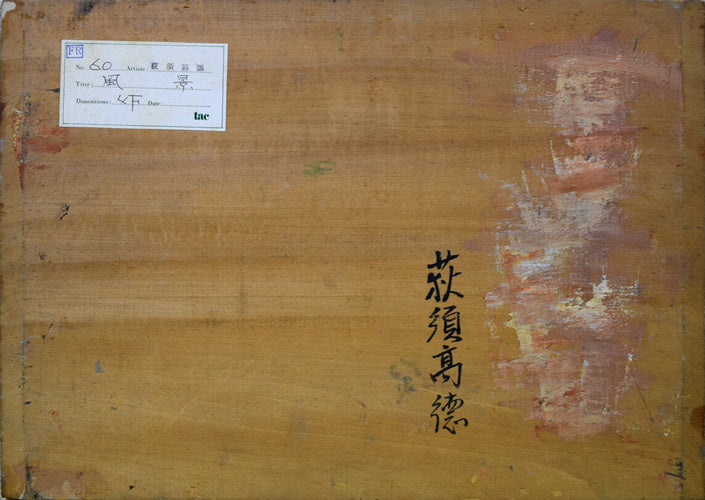 FR
No. 60 Artiste: 荻須高徳
Titre: 風景
Dimensions: 4F Date:
tac
荻須高徳